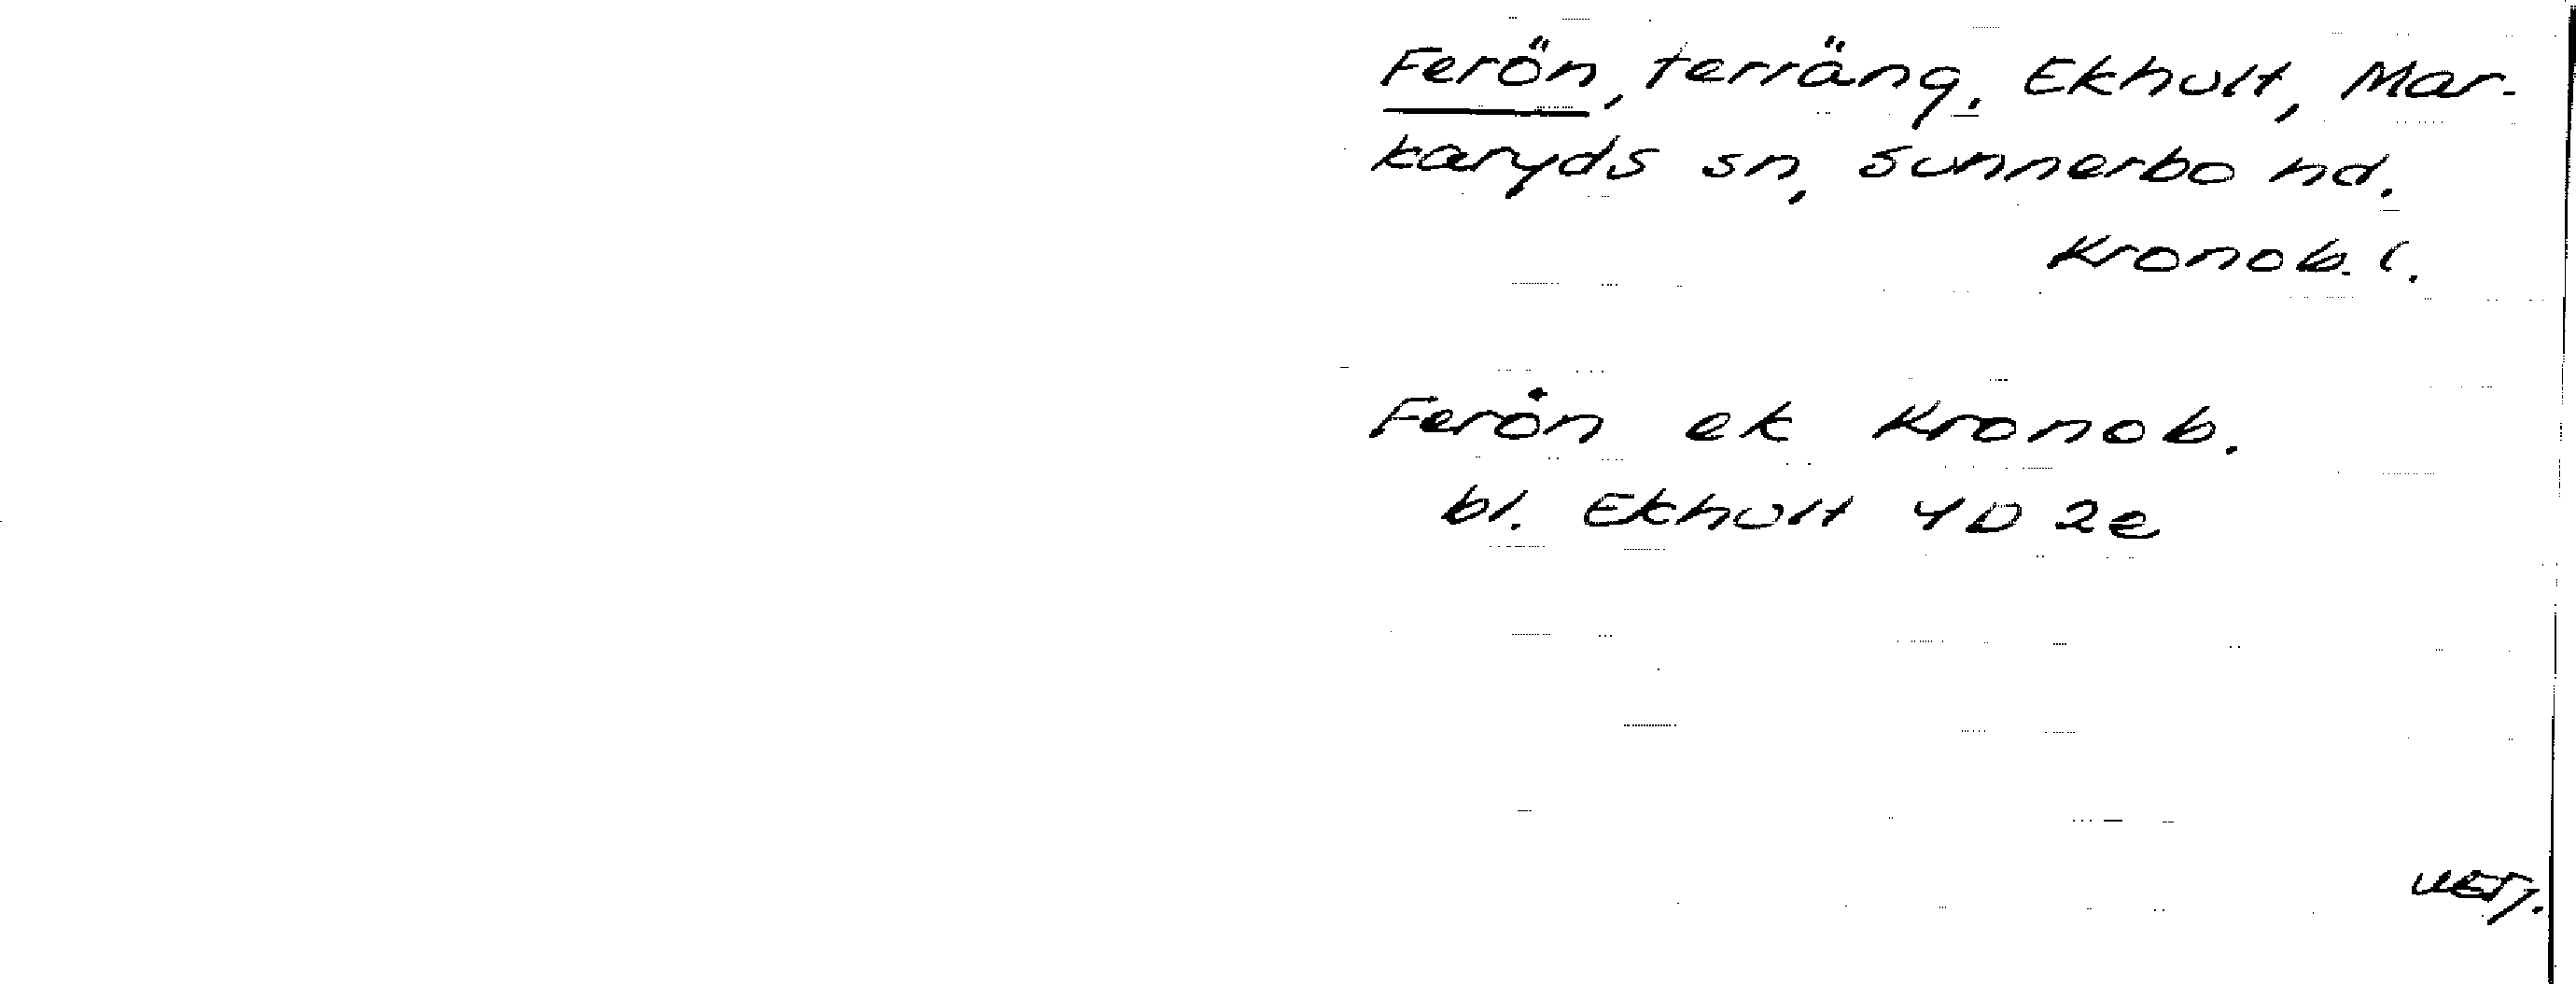 Ferön, terräng, Ekhult, Mar-
karyds sn, Sunnerbo hd.
Kronob. l.
Ferön ek Kronob.
bl. Ekhult 4D 2e